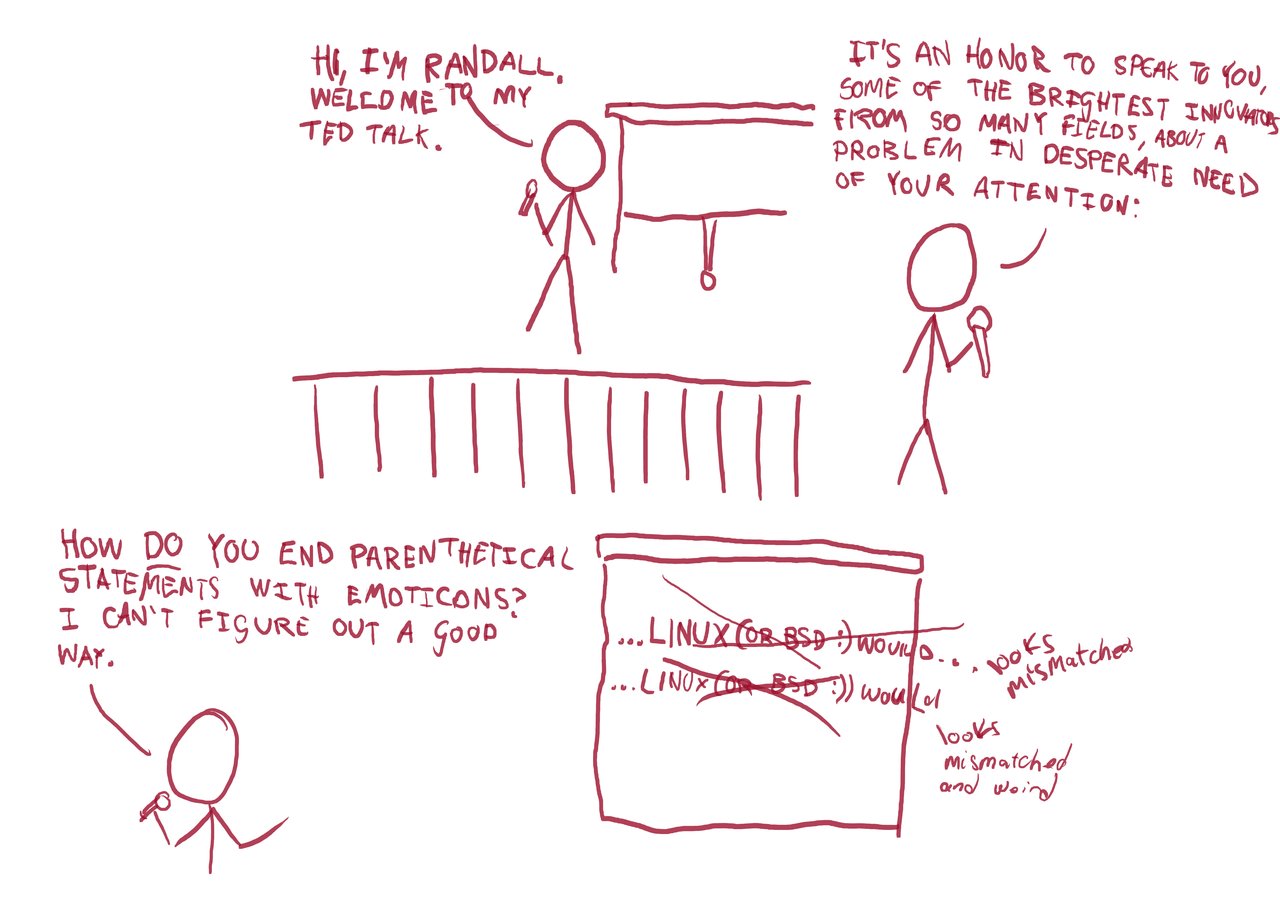 HI, I'M RANDALL.
WELCOME TO MY
TED TALK.
IT'S AN HONOR TO SPEAK TO YOU,
SOME OF THE BRIGHTEST INNOVATORS
FROM SO MANY FIELDS, ABOUT A
PROBLEM IN DESPERATE NEED
OF YOUR ATTENTION:
HOW DO YOU END PARENTHETICAL
STATEMENTS WITH EMOTICONS?
I CAN'T FIGURE OUT A GOOD
WAY.
...LINUX (OR BSD :) WOULD...
looks
mismatched
...LINUX (OR BSD :)) would
looks
mismatched
and weird